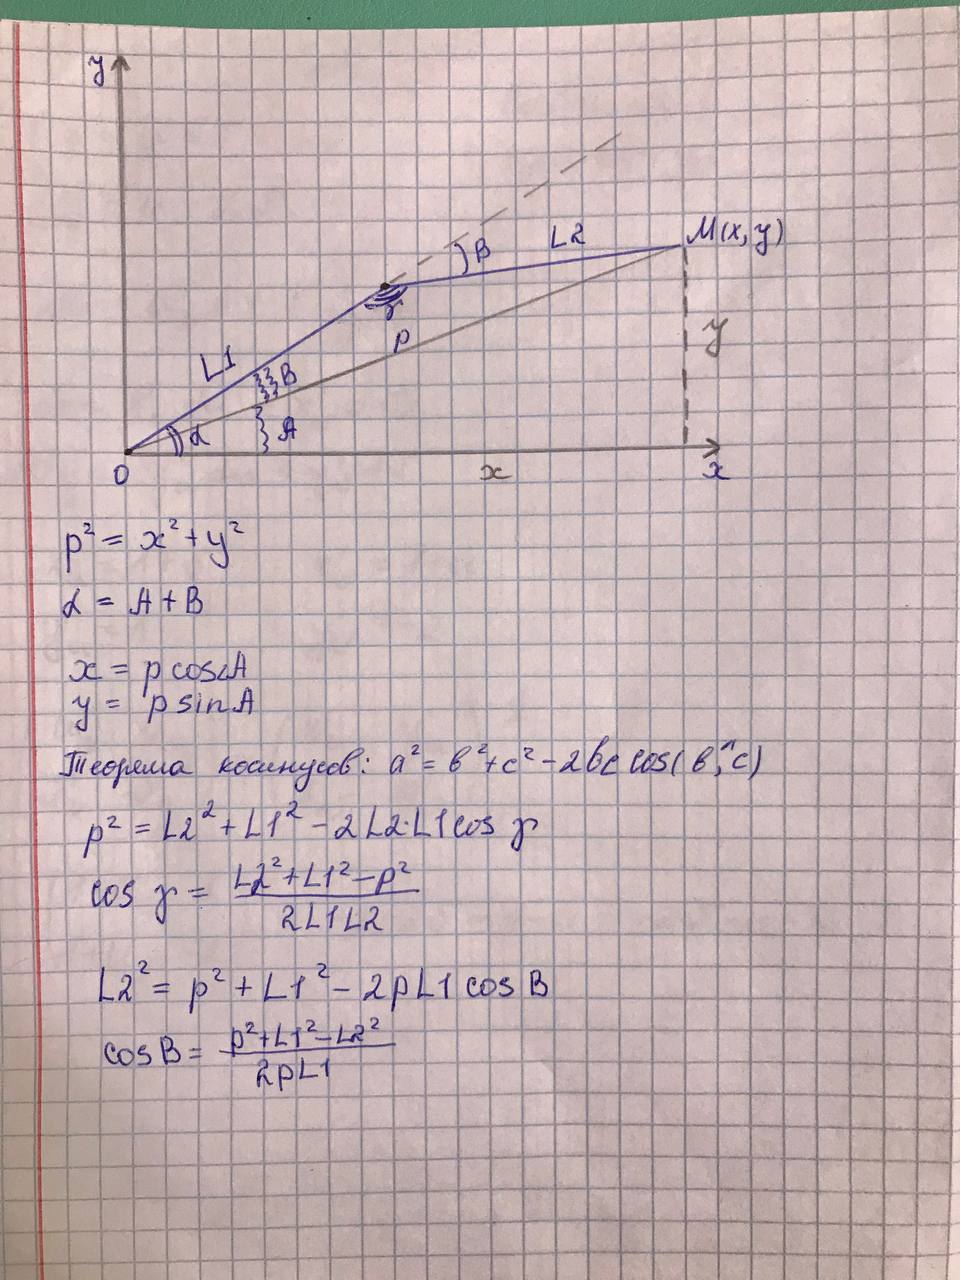 y
M(x, y)
B
L2
γ
y
L1
p
B
α
A
O
x
x
p² = x² + y²
α = A + B
x = p cosA
y = p sinA
Теорема косинусов: a² = в² + c² - 2вc cos(в,^c)
p² = L2² + L1² - 2L2·L1 cos γ
cos γ = (L2² + L1² - p²) / 2L1L2
L2² = p² + L1² - 2pL1 cos B
cosB = (p² + L1² - L2²) / 2pL1